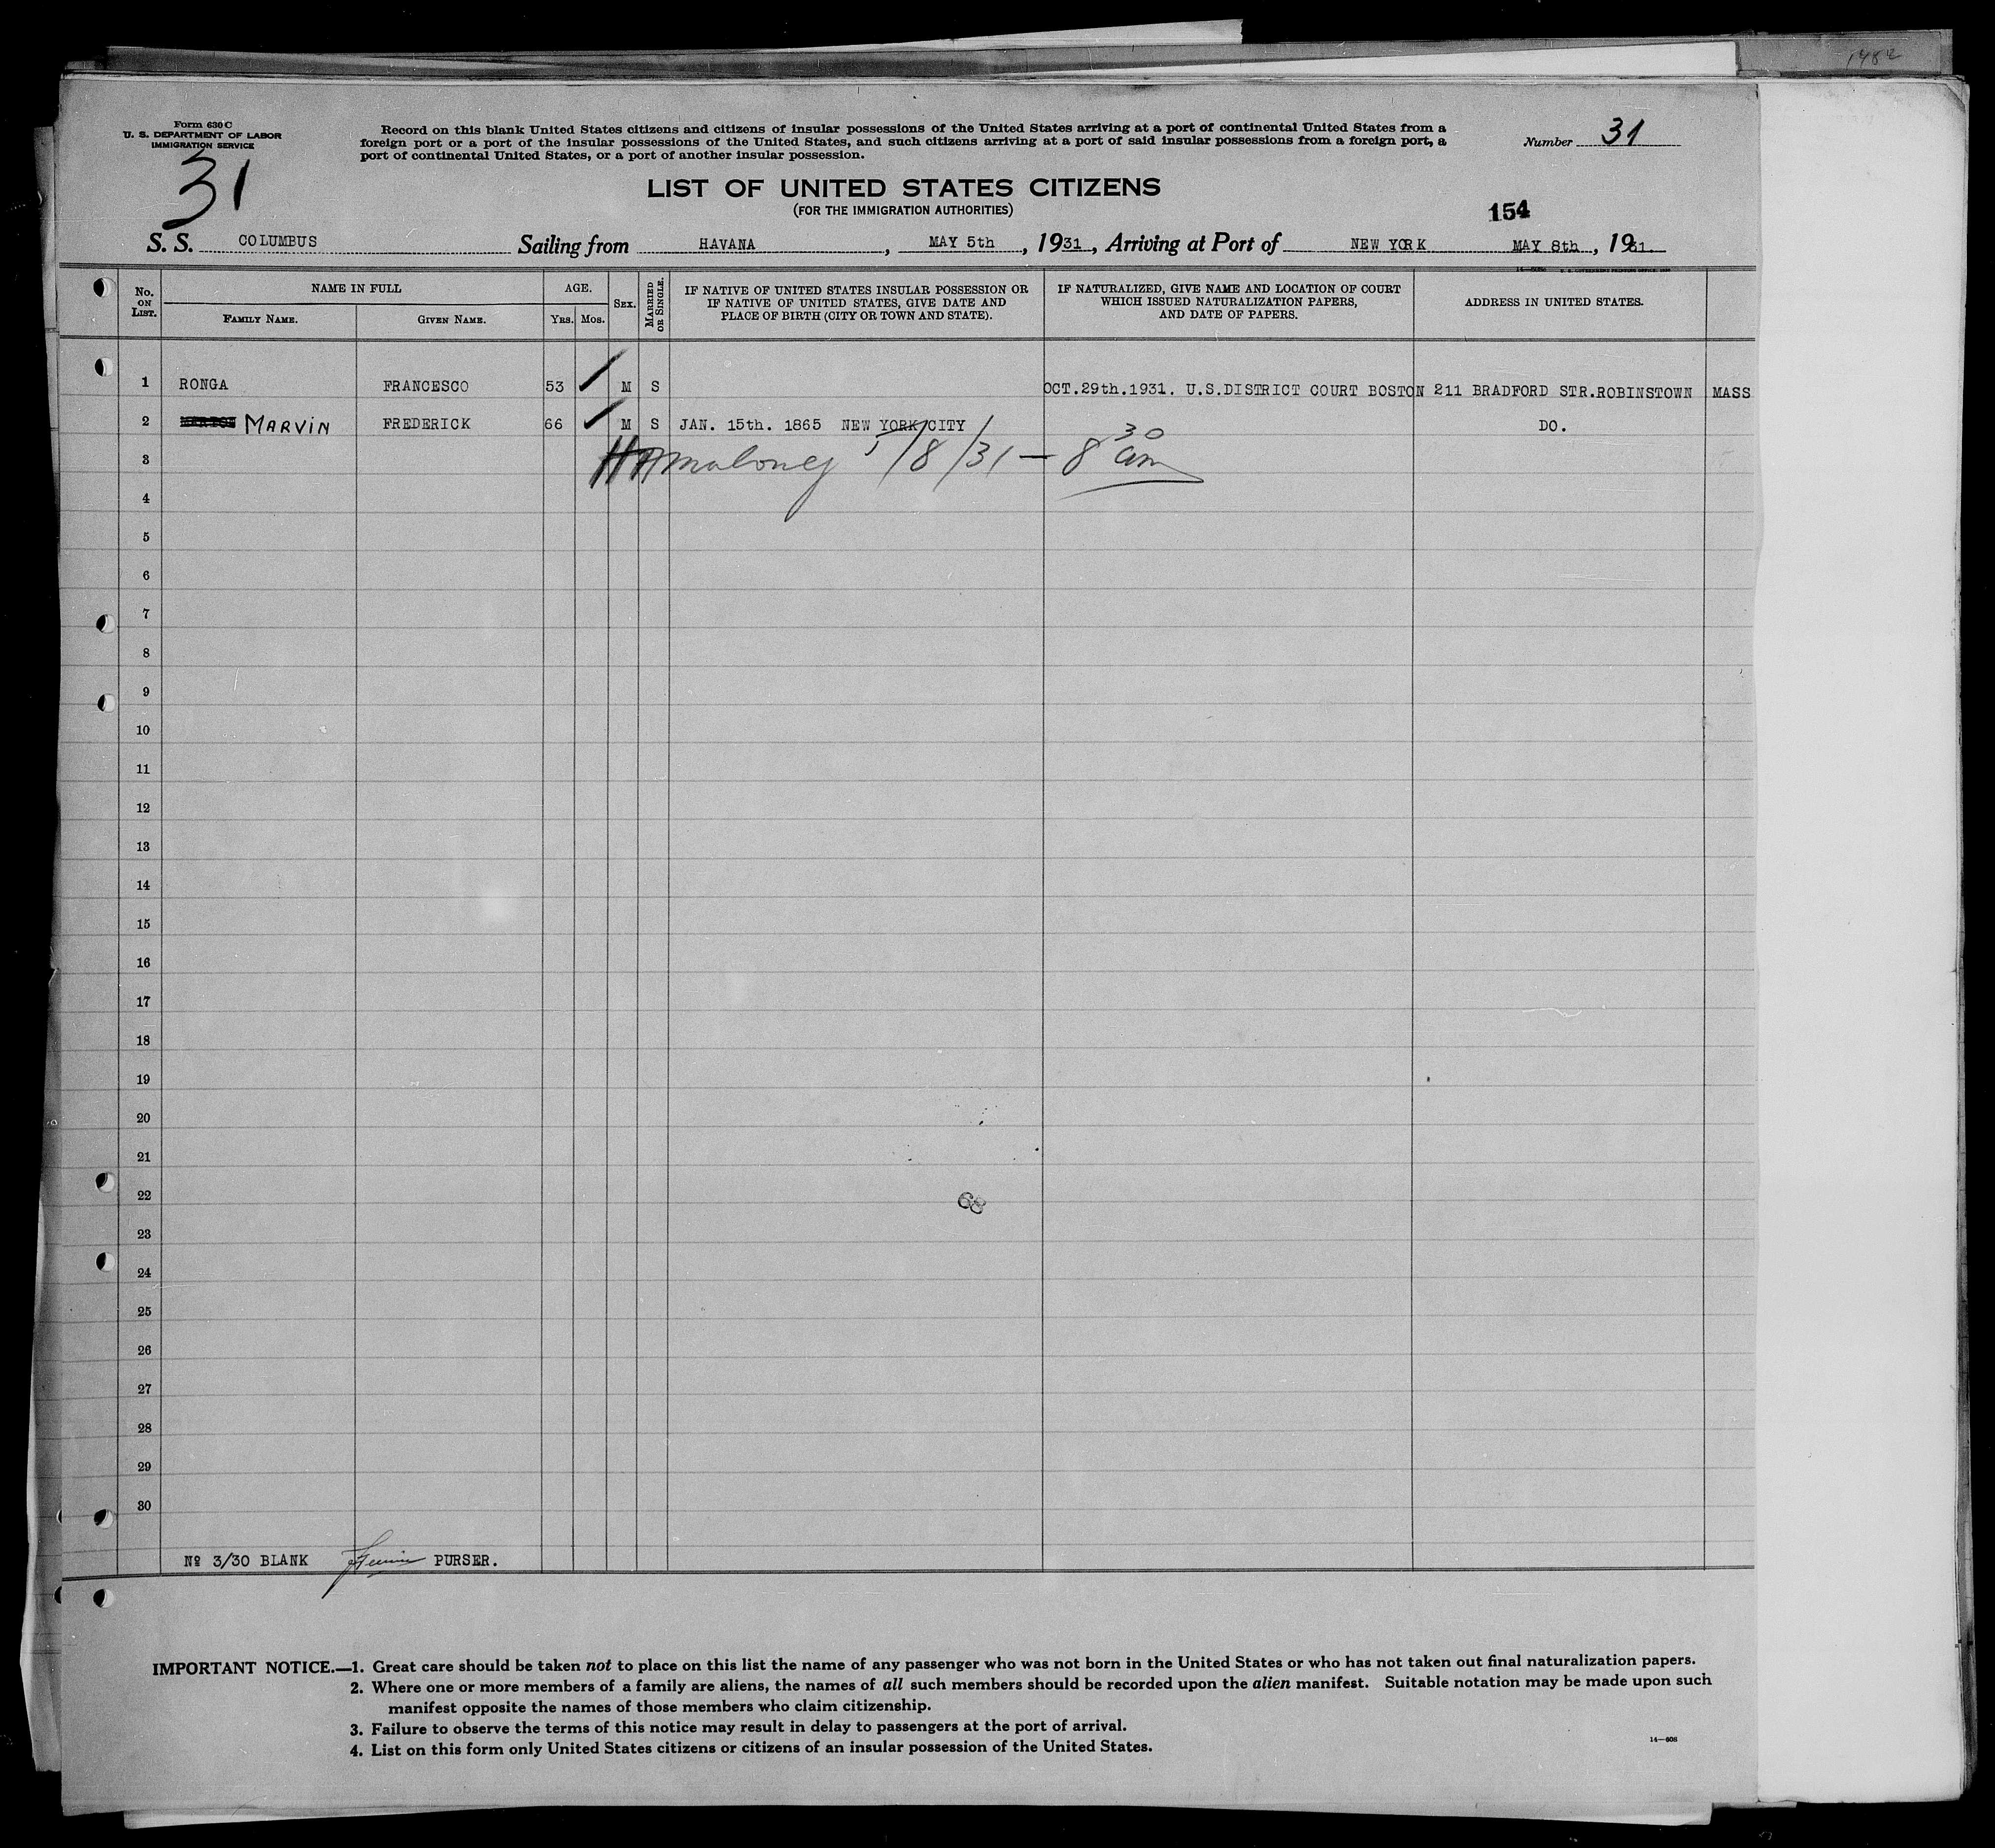 1482
Form 630 C
U. S. DEPARTMENT OF LABOR
IMMIGRATION SERVICE
31
Record on this blank United States citizens and citizens of insular possessions of the United States arriving at a port of continental United States from a
foreign port or a port of the insular possessions of the United States, and such citizens arriving at a port of said insular possessions from a foreign port, a
port of continental United States, or a port of another insular possession.
Number 31
LIST OF UNITED STATES CITIZENS
(FOR THE IMMIGRATION AUTHORITIES)
154
S. S. COLUMBUS Sailing from HAVANA, MAY 5th, 1931, Arriving at Port of NEW YORK MAY 8th, 1931.
No. ON LIST. NAME IN FULL AGE. SEX. MARRIED OR SINGLE. IF NATIVE OF UNITED STATES INSULAR POSSESSION OR IF NATIVE OF UNITED STATES, GIVE DATE AND PLACE OF BIRTH (CITY OR TOWN AND STATE). IF NATURALIZED, GIVE NAME AND LOCATION OF COURT WHICH ISSUED NATURALIZATION PAPERS, AND DATE OF PAPERS. ADDRESS IN UNITED STATES.
FAMILY NAME. GIVEN NAME. YRS. MOS.
1 RONGA FRANCESCO 53 M S OCT.29th.1931. U.S.DISTRICT COURT BOSTON 211 BRADFORD STR.ROBINSTOWN MASS
2 MARVIN FREDERICK 66 M S JAN. 15th. 1865 NEW YORK CITY DO.
3 Maloney 5/8/31 — 8 30 am
4
5
6
7
8
9
10
11
12
13
14
15
16
17
18
19
20
21
22
68
23
24
25
26
27
28
29
30
Nº 3/30 BLANK PURSER.
IMPORTANT NOTICE.—1. Great care should be taken not to place on this list the name of any passenger who was not born in the United States or who has not taken out final naturalization papers.
2. Where one or more members of a family are aliens, the names of all such members should be recorded upon the alien manifest. Suitable notation may be made upon such
manifest opposite the names of those members who claim citizenship.
3. Failure to observe the terms of this notice may result in delay to passengers at the port of arrival.
4. List on this form only United States citizens or citizens of an insular possession of the United States.
14—608